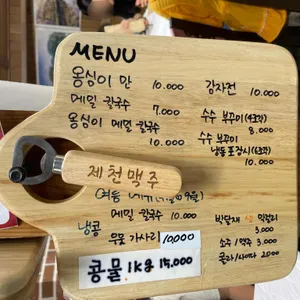 MENU
옹심이 만 10.000
메밀 칼국수 7.000
옹심이 메밀 칼국수 10.000
감자전 10.000
수수 부꾸미 (4조각) 8.000
수수 부꾸미 냉동포장시(6조각) 10.000
제천맥주
(여름
메밀 칼국수 10.000
냉콩
우뭇가사리 10,000
콩물 1kg 15,000
박달재 막걸리 3,000
소주/맥주 3.000
콜라/사이다 2000